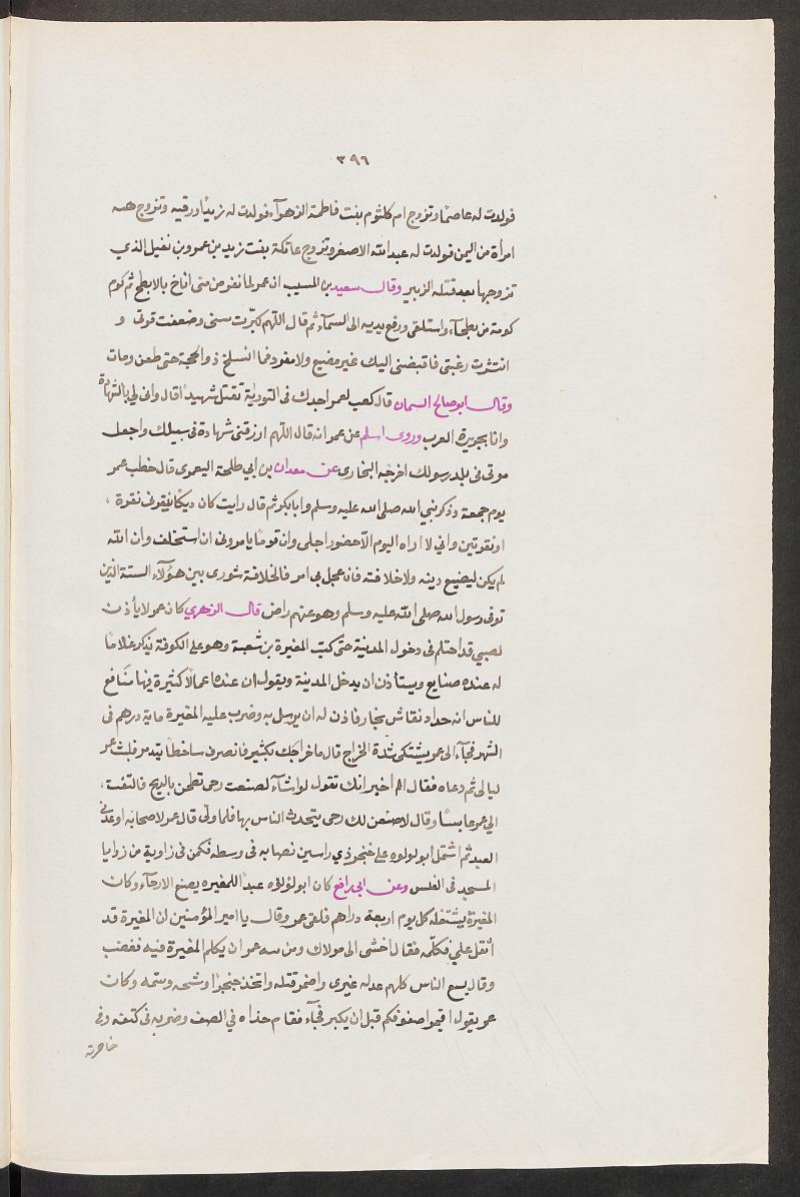 ٣٩٦
فولدت له عاصمًا وتزوج ام كلثوم بنت فاطمة الزهرآء فولدت له زيدًا ورقيه وتزوج
امرأة من اليمن فولدت له عبد الله الاصغر وتزوج عاتكة بنت زيد بن عمرو بن نفيل الذي
تزوجها بعد قتله الزبير وقال سعيد بن المسيب ان عمر لما نفر من منى اناخ بالابطح ثم كوم
كومة من بطحآء واستلقى ورفع يديه الى السمآء ثم قال اللهم كبرت سنى وضعفت قوتى و
انتثرت رغبتى فاقبضنى اليك غير مضيع ولا مفرد فما انسلخ ذو الحجة حتى طعن ومات
وقال ابو صالح السمان قال كعب لعمر اجدك فى التوراية تقتل شهيدًا قال وانى لي بالشهادة
وانا بجزيرة العرب وروى اسلم عن عمر انه قال اللهم ارزقنى شهادة فى سبيلك واجعل
موتى فى بلد رسولك اخرجه البخارى عن معدان بن ابي طلحة اليعمرى قال خطب عمر
يوم جمعة وذكر نبي الله صلى الله عليه وسلم وابا بكر ثم قال رايت كان ديكًا ينقرنى نقرة
او نقرتين واني لا اراه اليوم الا حضور اجلى وان قومًا يامرونى ان استخلف وان الله
لم يكن ليضيع دينه ولا خلافته فان عجل بى امر فالخلافة شورى بين هؤلآء الستة الذين
توفى رسول الله صلى الله عليه وسلم وهو عنهم راض قال الزهري كان عمر لا ياذن
لصبي قد احتلم فى دخول المدينة حتى كتب المغيرة بن شعبة وهو على الكوفة يذكر غلامًا
له عنده صنايع ويستأذن ان يدخل المدينة ويقول ان عنده اعمالًا كثيرة فيها منافع
للناس انه حداد نقاش نجار فاذن له ان يرسل به وضرب عليه المغيرة ماية درهم فى
الشهر فجآء الى عمر يشتكى شدة الخراج قال ما خراجك بكثير فانصرف ساخطًا يتذمر فلبث عمر
ليالى ثم دعاه فقال الم اخبر انك تقول لو اشآء لصنعت رحى تطحن بالريح فالتفت
الي عمر عابسًا وقال لاصنعن لك رحى يتحدث الناس بها فلما ولى قال عمر لاصحابه اوعدنى
العبد ثم اشتمل ابو لولوه على خنجر ذي راسين نصابه فى وسطه فكمن فى زاوية من زوايا
المسجد فى الغلس وعن ابى رافع كان ابو لؤلؤه عبدًا للمغيره يصنع الارحآء وكان
المغيرة يشتغله كل يوم اربعة دراهم فلقى عمر وقال يا امير المؤمنين ان المغيرة قد
اثقل علي فكلمه فقال احسن الى مولاك ومن عمر ان يكلم المغيرة فيه فغضب
وقال يسع الناس كلهم عدله غيرى واضمر قتله واتخذ خنجرًا وشحذه وسمه وكان
عمر يقول اقيموا صفوفكم قبل ان يكبر فجآء فقام حذاه في الصف وضربه فى كتفه وفى
خاصرته